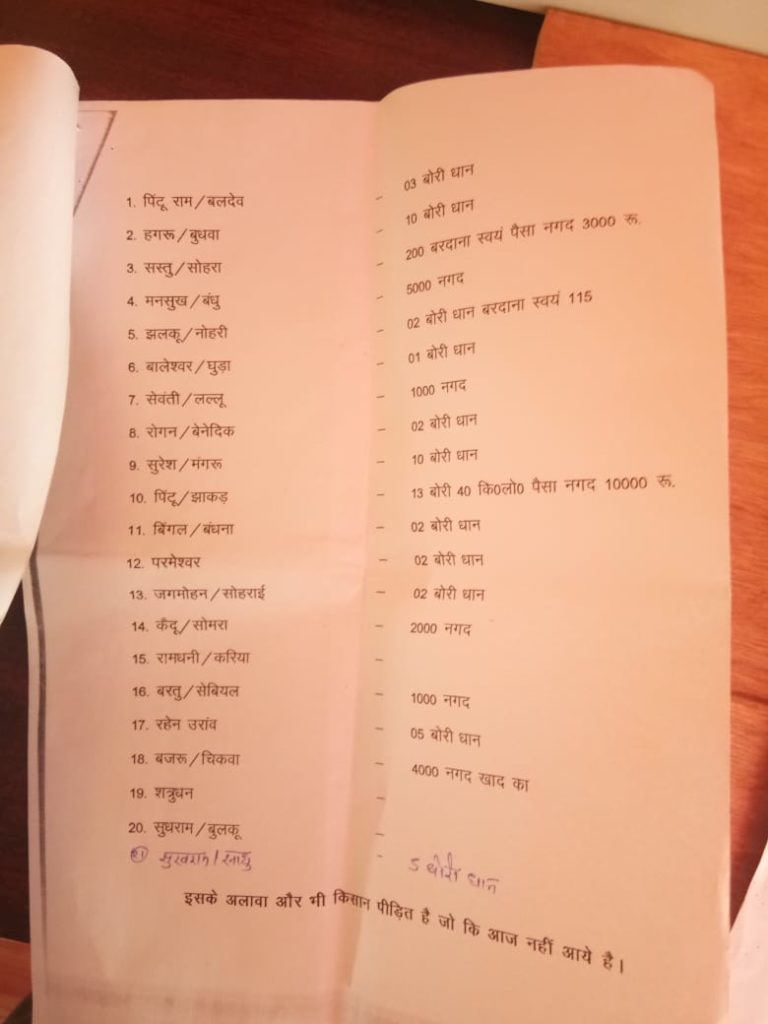 1. पिंटू राम/बलदेव – 03 बोरी धान
2. हगरू/बुधवा – 10 बोरी धान
3. सस्तु/सोहरा – 200 बरदाना स्वयं पैसा नगद 3000 रू.
4. मनसुख/बंधु – 5000 नगद
5. झलकू/नोहरी – 02 बोरी धान बरदाना स्वयं 115
6. बालेश्वर/घुड़ा – 01 बोरी धान
7. सेवंती/लल्लू – 1000 नगद
8. रोगन/बेनेदिक – 02 बोरी धान
9. सुरेश/मंगरू – 10 बोरी धान
10. पिंटू/झाकड़ – 13 बोरी 40 कि0लो0 पैसा नगद 10000 रू.
11. बिंगल/बंधना – 02 बोरी धान
12. परमेश्वर – 02 बोरी धान
13. जगमोहन/सोहराई – 02 बोरी धान
14. कँदू/सोमरा – 2000 नगद
15. रामधनी/करिया –
16. बरतु/सेबियल – 1000 नगद
17. रहेन उरांव – 05 बोरी धान
18. बजरू/चिकवा – 4000 नगद खाद का
19. शत्रुधन –
20. सुधराम/बुलकू –
21 सुखराम/ – 5 बोरी धान
इसके अलावा और भी किसान पीड़ित है जो कि आज नहीं आये है।